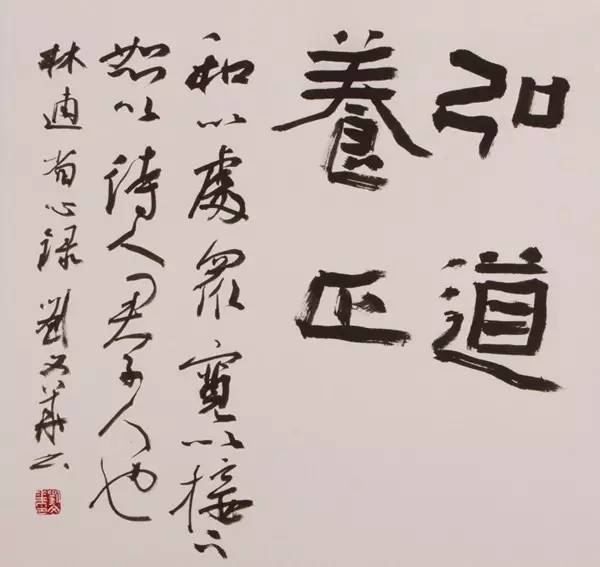 弘道
養正
和以處眾寬以接下
恕以待人君子人也
林逋省心録 劉文華书